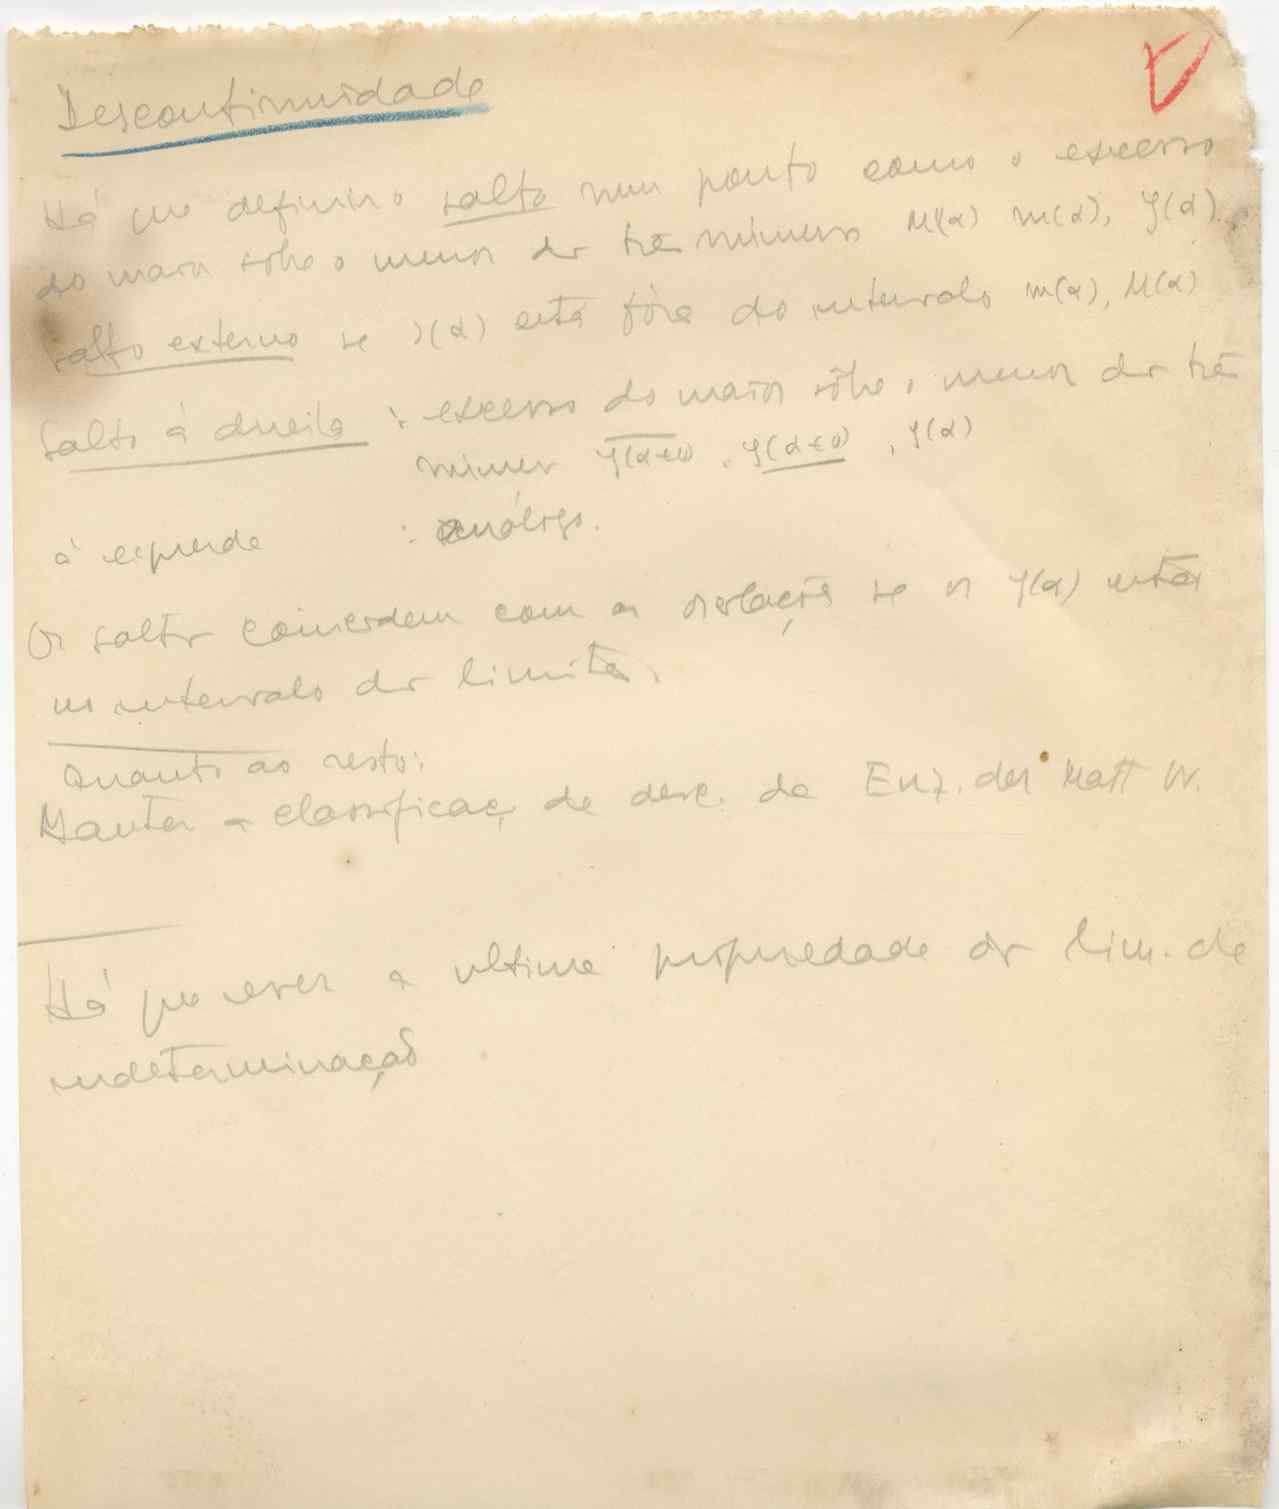 Descontinuidade
Há que definir o salto num ponto como o excesso
do maior sôbre o menor dos três números M(α) m(α), f(α).
salto externo se f(α) está fóra do intervalo m(α), M(α)
Salto à direita : excesso do maior sôbre o menor dos três
números f(α+0), f(α+0), f(α)
à esquerda : análogo.
Os saltos coincidem com as oscilações se os f(α) estão
no intervalo dos limites.
Quanto ao resto:
Manter a classificaç. de desc. da Enz. der Math W.
Há que rever a ultima propriedade dos lim. de
indeterminação